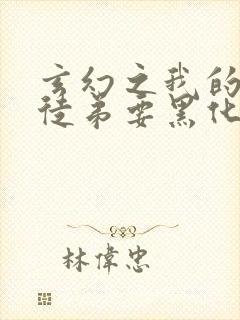 玄幻之我的
徒弟要黑化
林偉忠